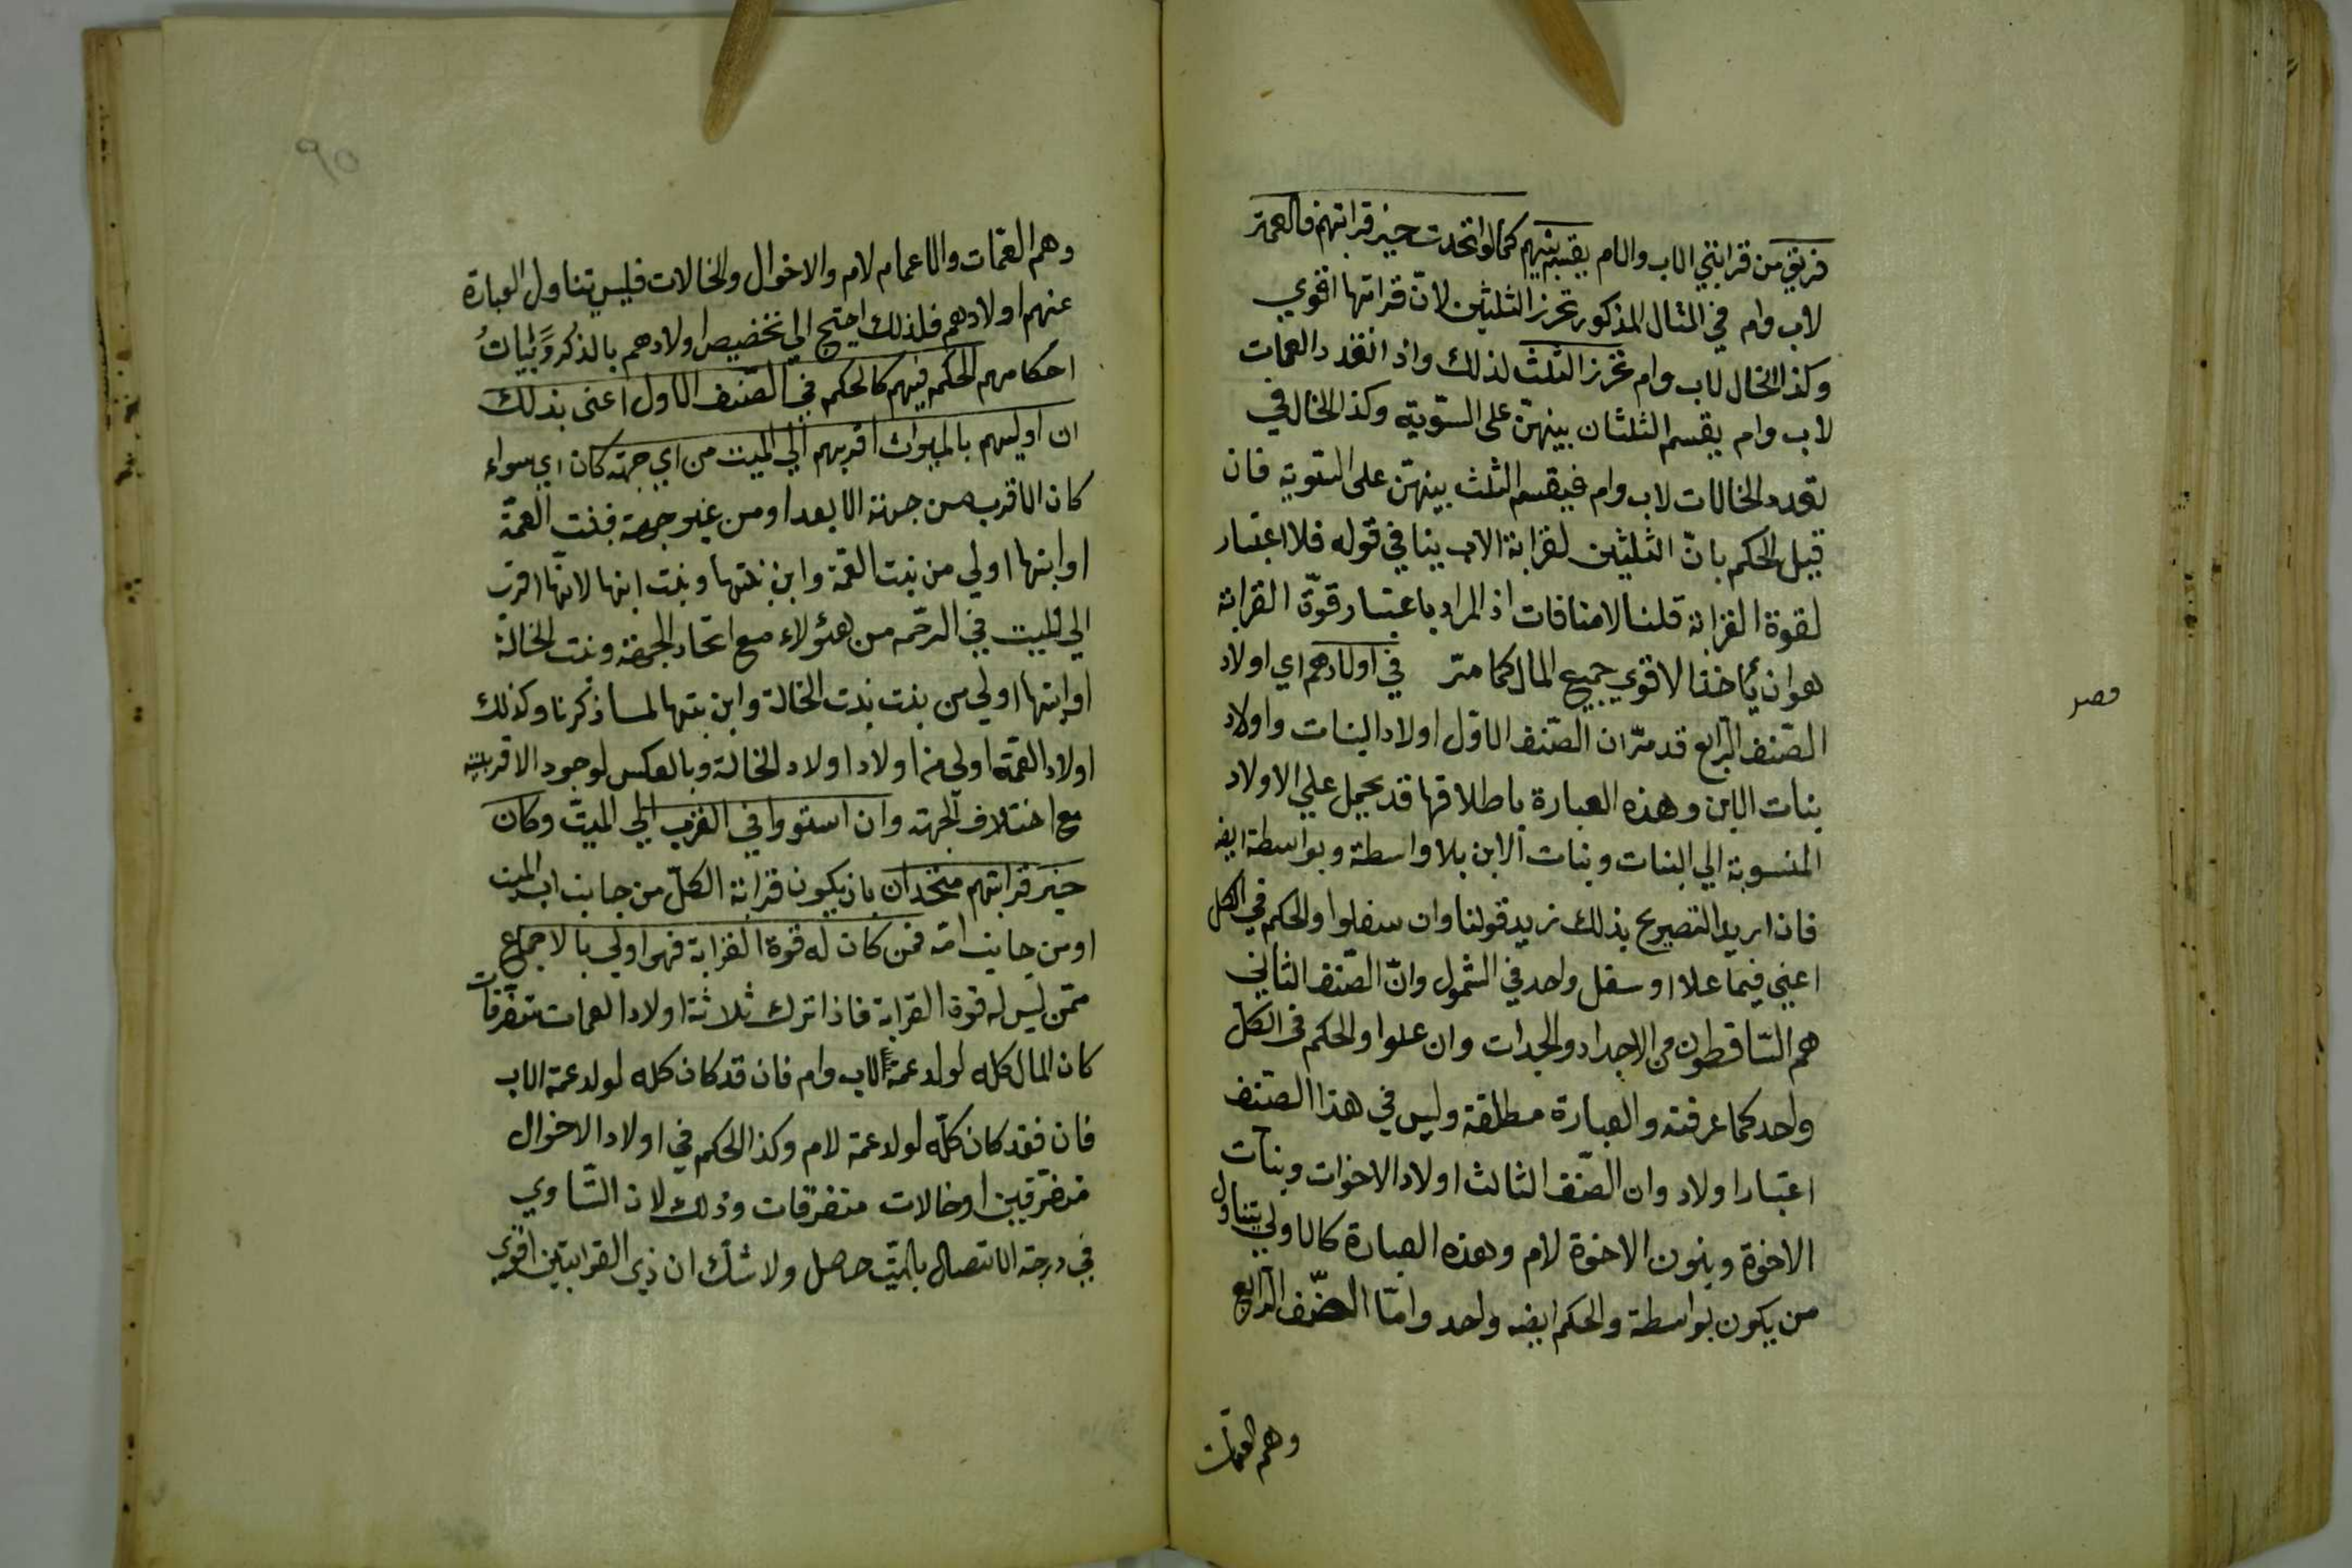 فريق من قرابتي الاب والام يقسم بينهم كما لو اتحدت حيز قرابتهم فالعمة
لاب وام في المثال المذكور تحرز الثلثين لان قرابتها اقوي
وكذا الخال لاب وام تحرز الثلث لذلك واذا انفرد العمات
لاب وام يقسم الثلثان بينهن على السوية وكذا الحال في
تعدد الخالات لاب وام فيقسم الثلث بينهن على السوية فان
قيل الحكم بان الثلثين لقرابة الاب ينافي قوله فلا اعتبار
لقوة القرابة قلنا لا منافات اذ المراد باعتبار قوة القرابة
هو ان يأخذ الاقوي جميع المال كما مر في اولادهم اي اولاد
الصنف الرابع قد مر ان الصنف الاول اولاد البنات واولاد
بنات الابن وهذه العبارة باطلاقها قد يحمل علي الاولاد
المنسوبة الي البنات وبنات الابن بلا واسطة وبواسطة ايضا
فاذا اريد التصريح بذلك نزيد قولنا وان سفلوا والحكم في الكل
اعني فيما علا او سفل واحد في الشمول وان الصنف الثاني
هم الساقطون من الاجداد والجدات وان علوا والحكم في الكل
واحد كما عرفته والعبارة مطلقة وليس في هذا الصنف
اعتبار اولاد وان الصنف الثالث اولاد الاخوات وبنات
الاخوة وبنون الاخوة لام وهذه العبارة كالاولي يتناول
من يكون بواسطة والحكم ايضه واحد واما الصنف الرابع
وهم العمات
فصر
٩٥
وهم العمات والاعمام لام والاخوال والخالات فليس يتناول العبارة
عنهم اولادهم فلذلك احتيج الي تخصيص اولادهم بالذكر وبيان
احكامهم الحكم فيهم كالحكم في الصنف الاول اعني بذلك
ان اوليهم بالميراث اقربهم الي الميت من اي جهة كان اي سواء
كان الاقرب من جهة الابعد او من غير جهة فبنت العمة
او ابنها اولي من بنت العمة وابن بنتها وبنت ابنها لانها اقرب
الي الميت في الرحم من هؤلاء مع اتحاد الجهة وبنت الخالة
او ابنها اولي من بنت بنت الخالة وابن بنتها لما ذكرنا وكذلك
اولاد العمة اولي من اولاد اولاد الخالة وبالعكس لوجود الاقربية
مع اختلاف الجهة وان استووا في القرب الي الميت وكان
حيز قرابتهم متحدان بان يكون قرابة الكل من جانب اب الميت
او من جانب امه فمن كان له قوة القرابة فهو اولي بالاجماع
ممن ليس له قوة القرابة فاذا ترك ثلاثة اولاد العمات متفرقات
كان المال كله لولد عمة الاب وام فان فقد كان كله لولد عمة الاب
فان فقد كان كله لولد عمة لام وكذا الحكم في اولاد الاخوال
متفرقين او خالات متفرقات وذلك لان التساوي
في درجة الاتصال بالميت حاصل ولا شك ان ذي القرابتين اقوي